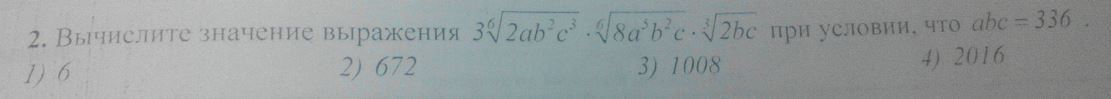 2. Вычислите значение выражения 3⁶√(2ab²c³) · ⁶√(8a⁵b²c) · ³√(2bc) при условии, что abc = 336 .
1) 6 2) 672 3) 1008 4) 2016